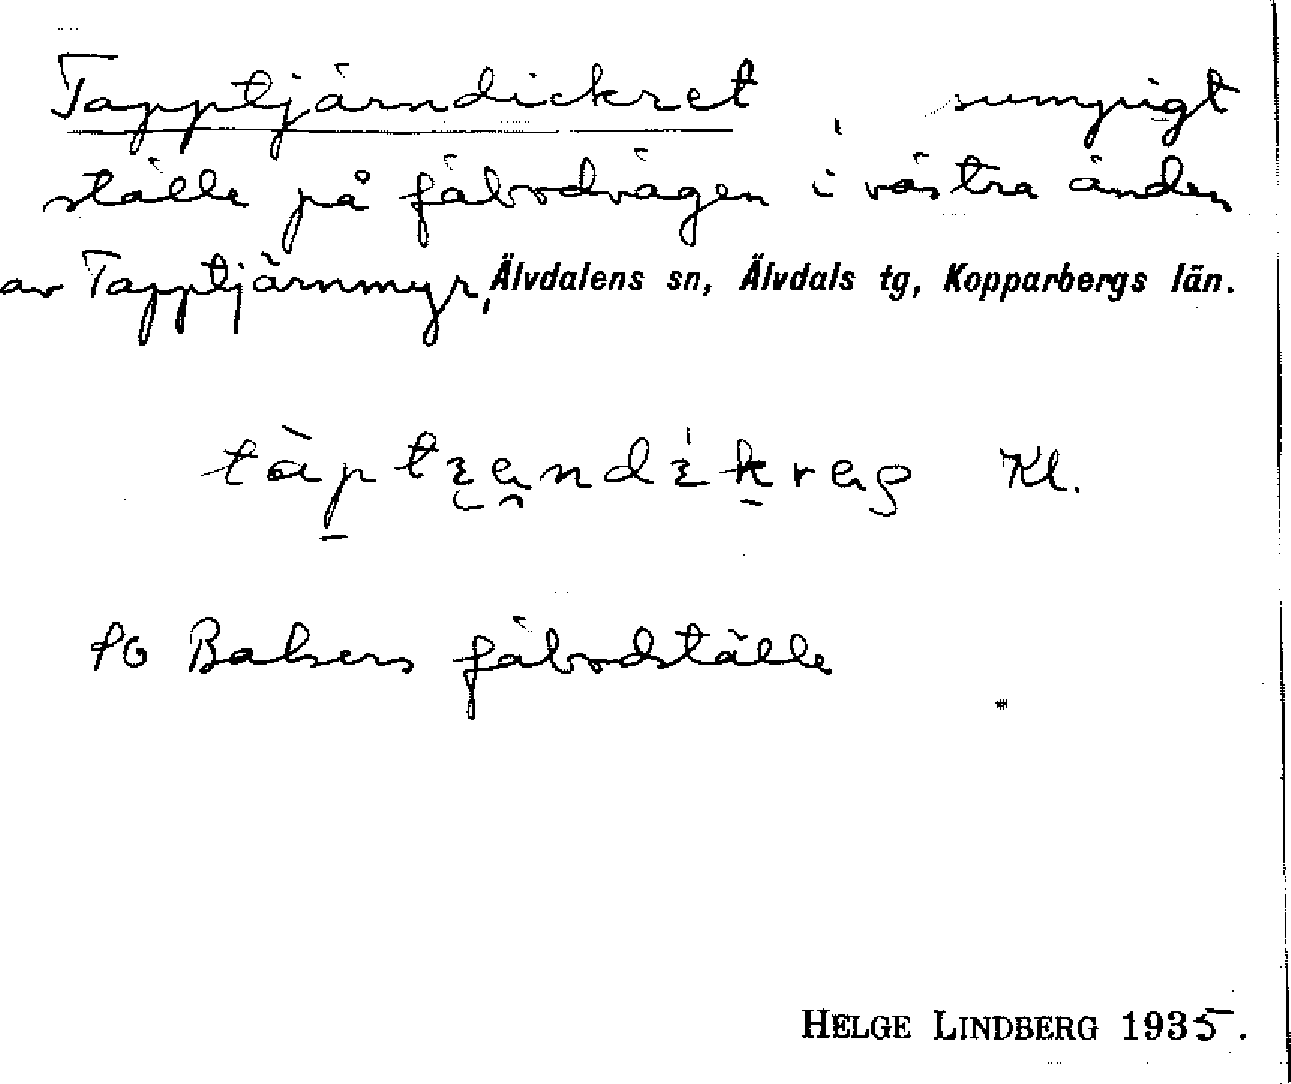 Tapptjärndickret sumpigt
ställe på fäbodvägen i västra änden
av Tapptjärnmyr, Älvdalens sn, Älvdals tg, Kopparbergs län.
Kl.
SO Balsers fäbodställe
HELGE LINDBERG 1935.